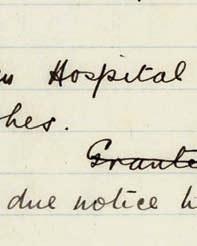 Hospital
hes.
Grante
due notice